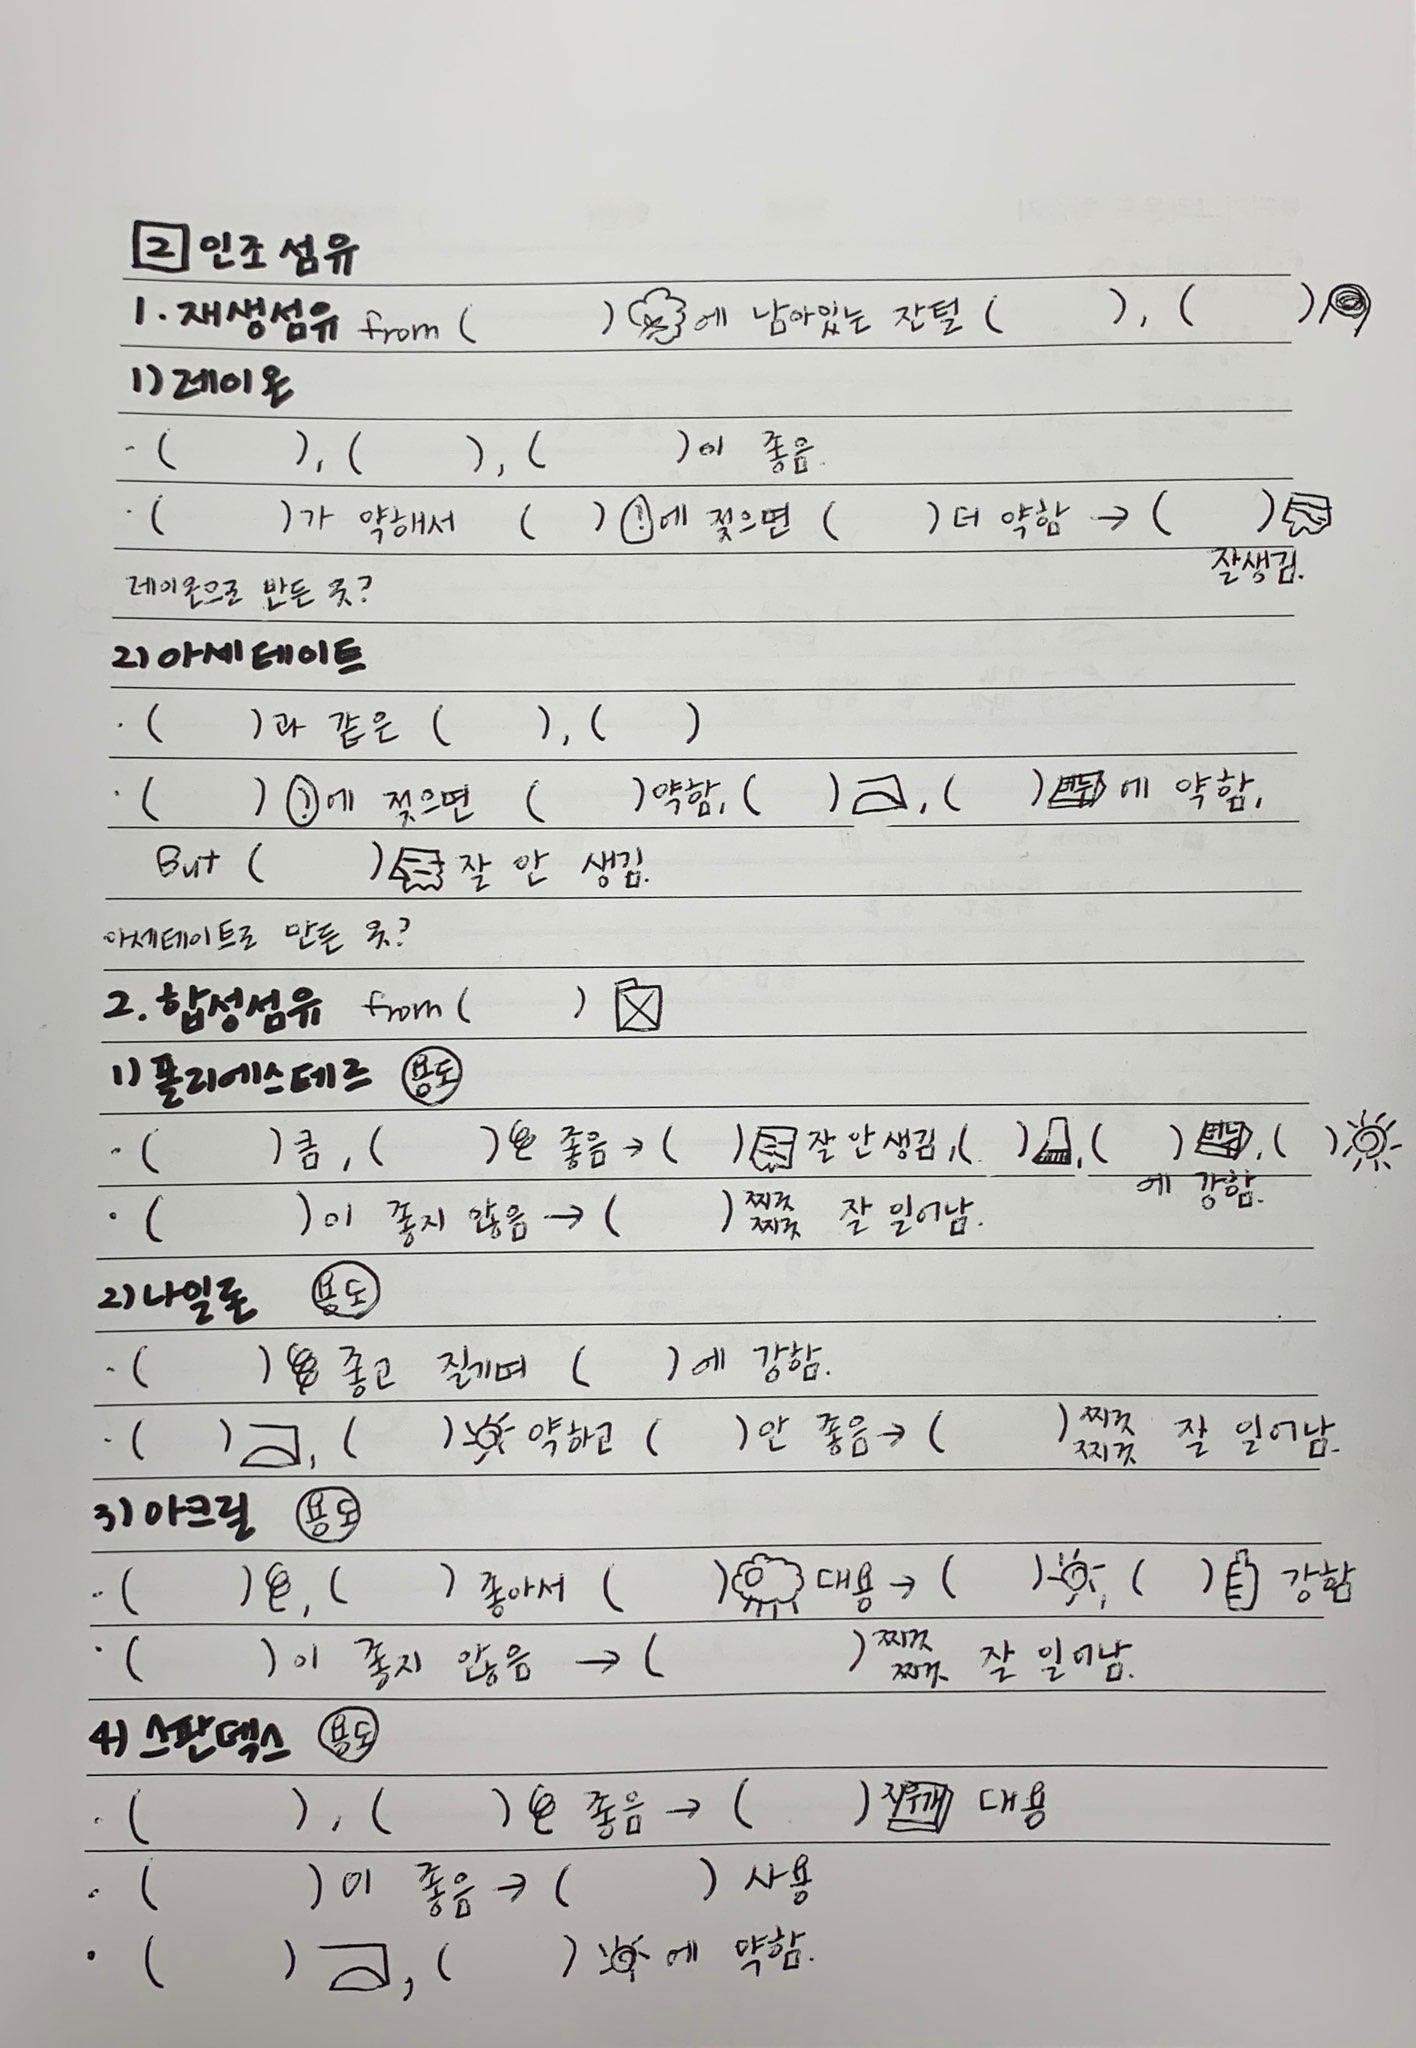 2 인조섬유
1. 재생섬유 from ( )에 남아있는 잔털 ( ), ( )
1) 레이온
· ( ), ( ), ( )이 좋음.
· ( )가 약해서 ( )에 젖으면 ( )더 약함 → ( )
잘생김.
레이온으로 만든 옷?
2) 아세테이트
· ( )과 같은 ( ), ( )
· ( )에 젖으면 ( )약함, ( ), ( )에 약함,
But ( ) 잘 안 생김.
아세테이트로 만든 옷?
2. 합성섬유 from ( )
1) 폴리에스테르 용도
· ( )큼, ( ) 좋음 → ( ) 잘 안생김, ( ), ( ), ( )
에 강함.
· ( )이 좋지 않음 → ( ) 찌릿 찌릿 잘 일어남.
2) 나일론 용도
· ( ) 좋고 질기며 ( )에 강함.
· ( ), ( ) 약하고 ( )안 좋음 → ( ) 찌릿 찌릿 잘 일어남.
3) 아크릴 용도
· ( ), ( ) 좋아서 ( ) 대용 → ( ), ( ) 강함
· ( )이 좋지 않음 → ( ) 찌릿 찌릿 잘 일어남.
4) 스판덱스 용도
· ( ), ( ) 좋음 → ( ) 지우개 대용
· ( )이 좋음 → ( ) 사용
· ( ), ( )에 약함.